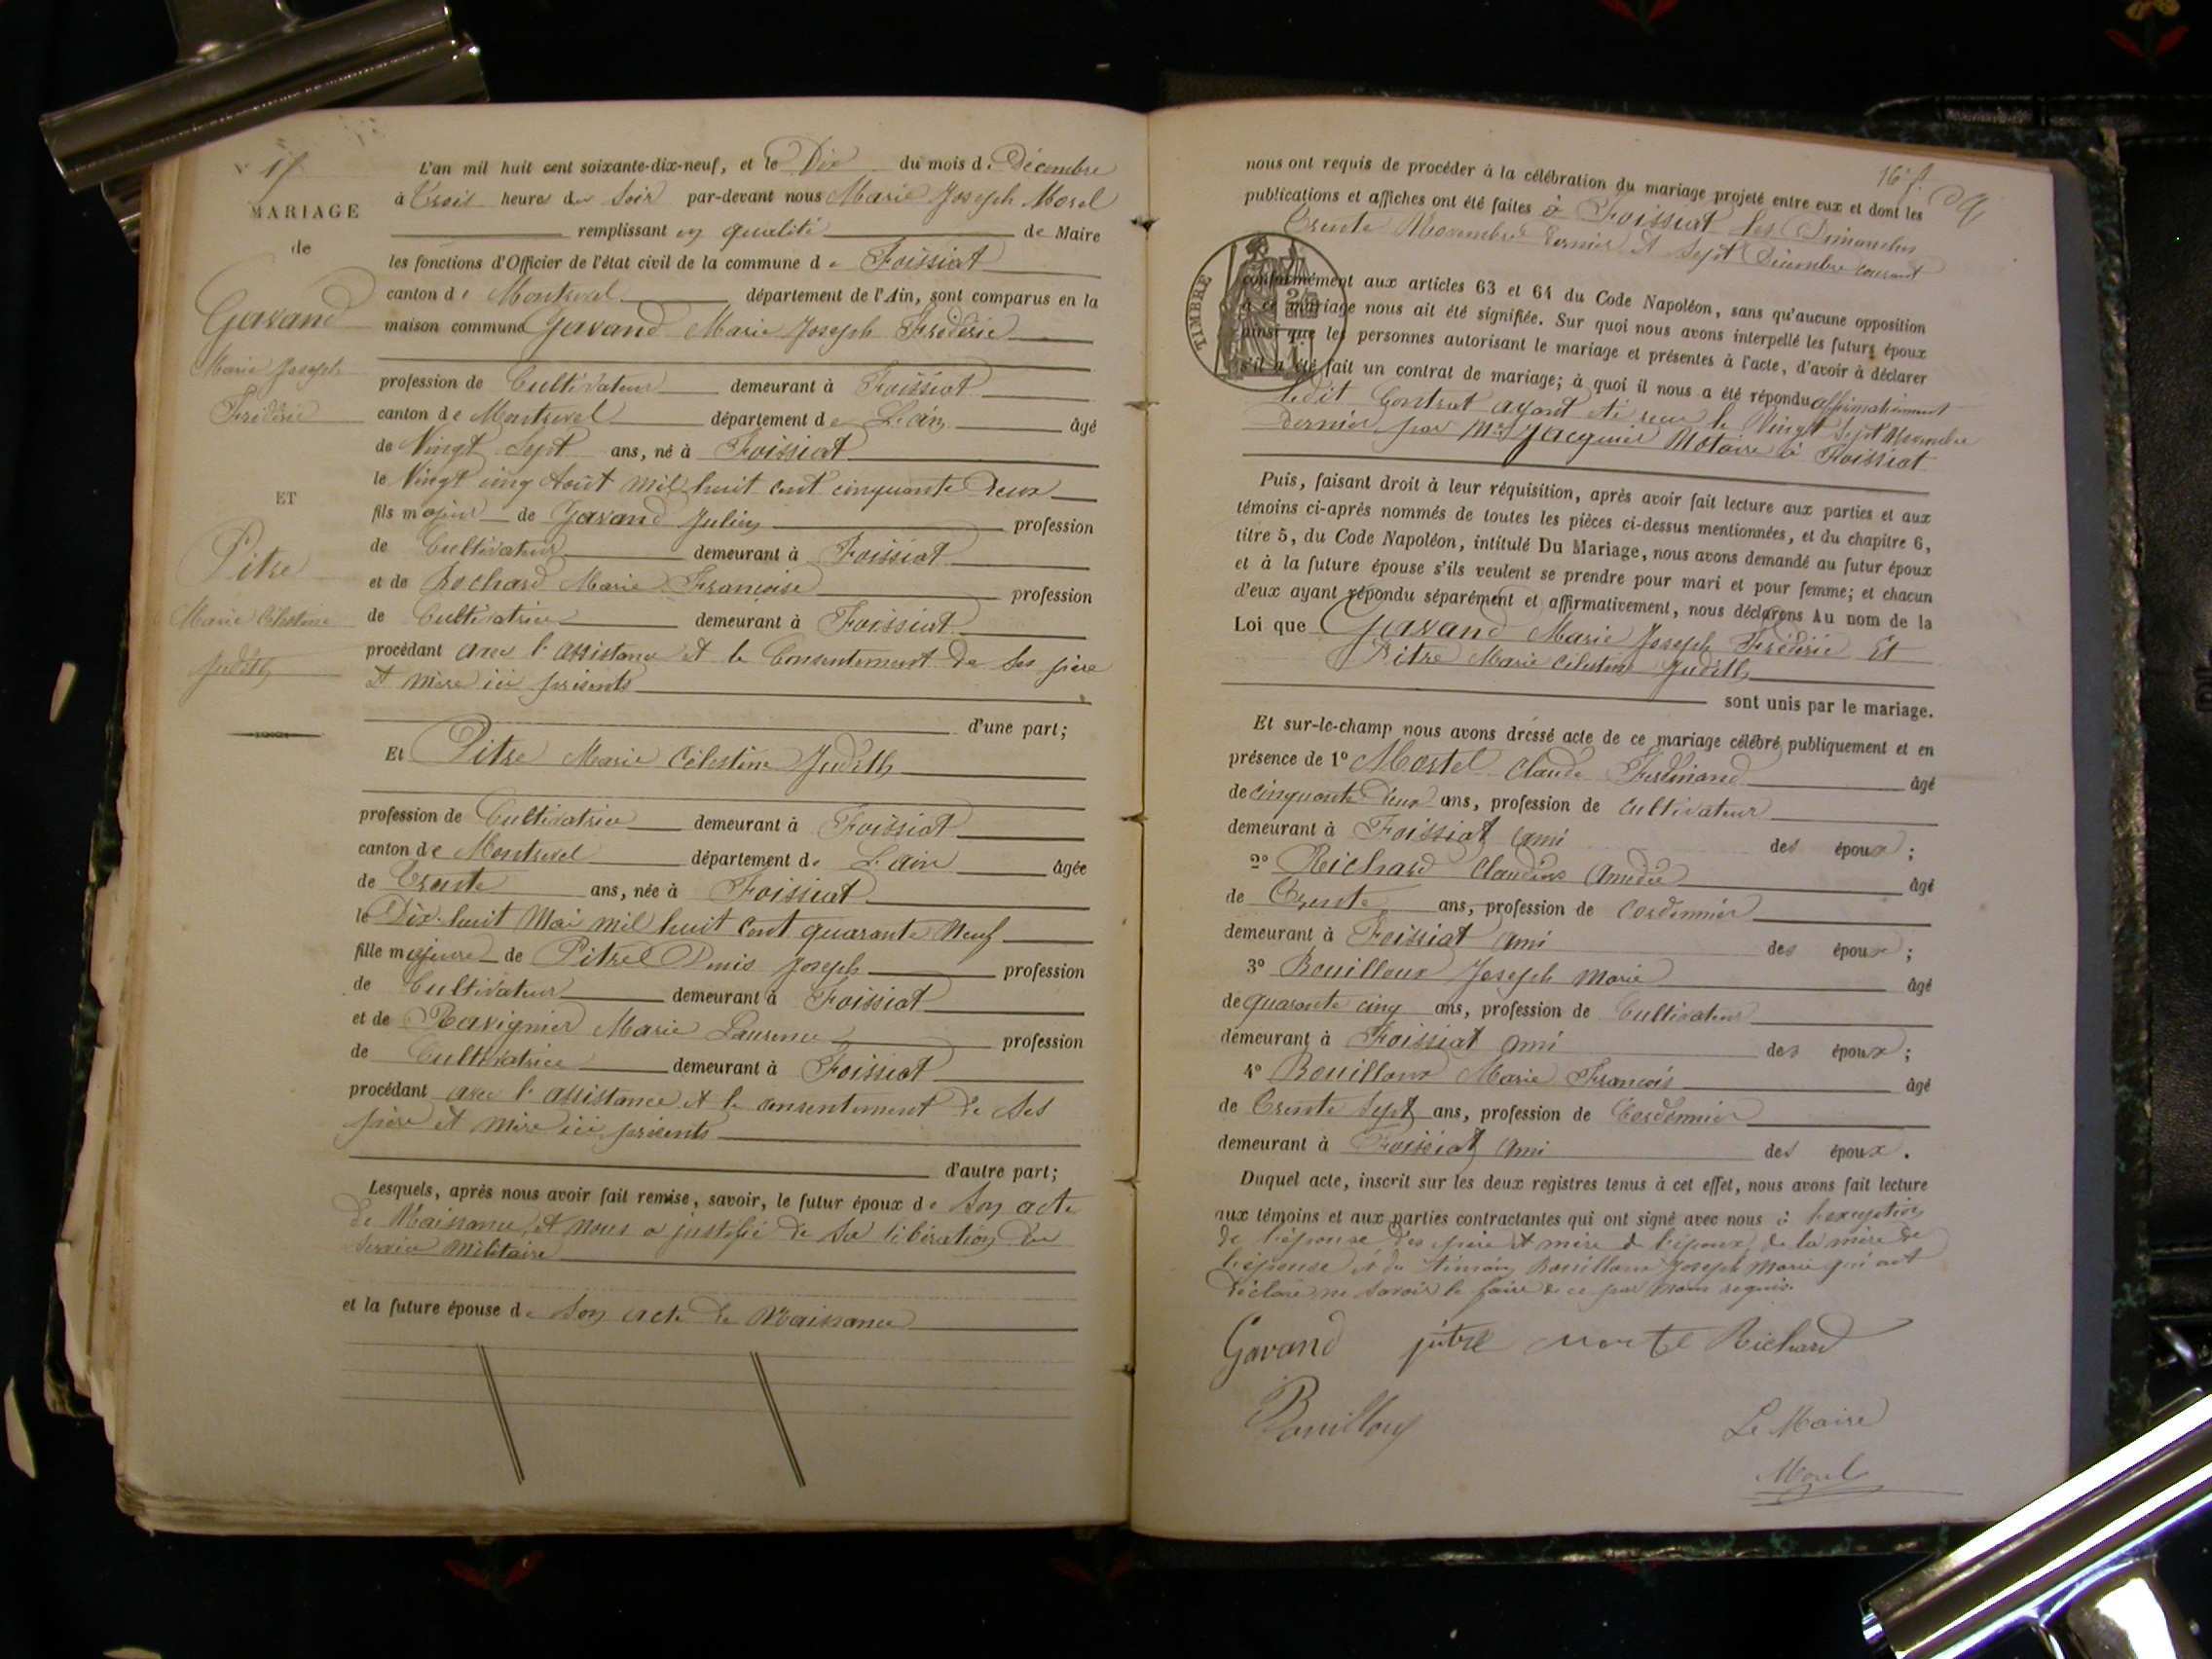 N° 17
MARIAGE
de
Gavand
Marie Joseph
Frédéric
ET
Pitre
Marie Célestine
Judith
L'an mil huit cent soixante-dix-neuf, et le Dix du mois de Décembre
à Trois heure du Soir par-devant nous Marie Joseph Morel
remplissant en qualité de Maire
les fonctions d'Officier de l'état civil de la commune de Foissiat
canton de Montrevel département de l'Ain, sont comparus en la
maison commune Gavand Marie Joseph Frédéric
profession de Cultivateur demeurant à Foissiat
canton de Montrevel département de L'ain âgé
de Vingt Sept ans, né à Foissiat
le Vingt cinq Août mil huit cent cinquante Deux
fils majeur de Gavand Julien profession
de Cultivateur demeurant à Foissiat
et de Rochard Marie Françoise profession
de Cultivatrice demeurant à Foissiat
procédant avec l'assistance et le Consentement de Ses père
et mère ici présents
d'une part;
Et Pitre Marie Célestine Judith
profession de Cultivatrice demeurant à Foissiat
canton de Montrevel département de L'ain âgée
de Trente ans, née à Foissiat
le Dix-huit Mai mil huit cent quarante Neuf
fille majeure de Pitre Denis Joseph profession
de Cultivateur demeurant à Foissiat
et de Ravignier Marie Laurence profession
de Cultivatrice demeurant à Foissiat
procédant avec l'assistance et le consentement de Ses
père et mère ici présents
d'autre part;
Lesquels, après nous avoir fait remise, savoir, le futur époux de Son acte
de Naissance, et nous a justifié de Sa libération du
Service Militaire
et la future épouse de Son acte de Naissance
16e f.
nous ont requis de procéder à la célébration du mariage projeté entre eux et dont les
publications et affiches ont été faites à Foissiat les Dimanches
Trente Novembre Dernier et Sept Décembre courant
TIMBRE
conformément aux articles 63 et 64 du Code Napoléon, sans qu'aucune opposition
à ce mariage nous ait été signifiée. Sur quoi nous avons interpellé les futurs époux
ainsi que les personnes autorisant le mariage et présentes à l'acte, d'avoir à déclarer
s'il a été fait un contrat de mariage; à quoi il nous a été répondu affirmativement
ledit Contrat ayant été reçu le Vingt Sept Novembre
Dernier par Me Jacquier Notaire à Foissiat
Puis, faisant droit à leur réquisition, après avoir fait lecture aux parties et aux
témoins ci-après nommés de toutes les pièces ci-dessus mentionnées, et du chapitre 6,
titre 5, du Code Napoléon, intitulé Du Mariage, nous avons demandé au futur époux
et à la future épouse s'ils veulent se prendre pour mari et pour femme; et chacun
d'eux ayant répondu séparément et affirmativement, nous déclarons Au nom de la
Loi que Gavand Marie Joseph Frédéric Et
Pitre Marie Célestine Judith
sont unis par le mariage.
Et sur-le-champ nous avons dressé acte de ce mariage célébré publiquement et en
présence de 1° Mortel Claude Ferdinand âgé
de cinquante Deux ans, profession de Cultivateur
demeurant à Foissiat ami des époux;
2° Richard Claudius Amédée âgé
de Trente ans, profession de Cordonnier
demeurant à Foissiat ami des époux;
3° Bouilloux Joseph Marie âgé
de quarante cinq ans, profession de Cultivateur
demeurant à Foissiat ami des époux;
4° Bouilloux Marie François âgé
de Trente Sept ans, profession de Cordonnier
demeurant à Foissiat ami des époux.
Duquel acte, inscrit sur les deux registres tenus à cet effet, nous avons fait lecture
aux témoins et aux parties contractantes qui ont signé avec nous à l'exception
de l'épouse des père et mère de l'époux, de la mère de
l'épouse et du témoin Bouilloux Joseph Marie qui ont
déclaré ne Savoir le faire de ce par Nous requis.
Gavand pitre mortel Richard
Bouilloux
Le Maire
Morel